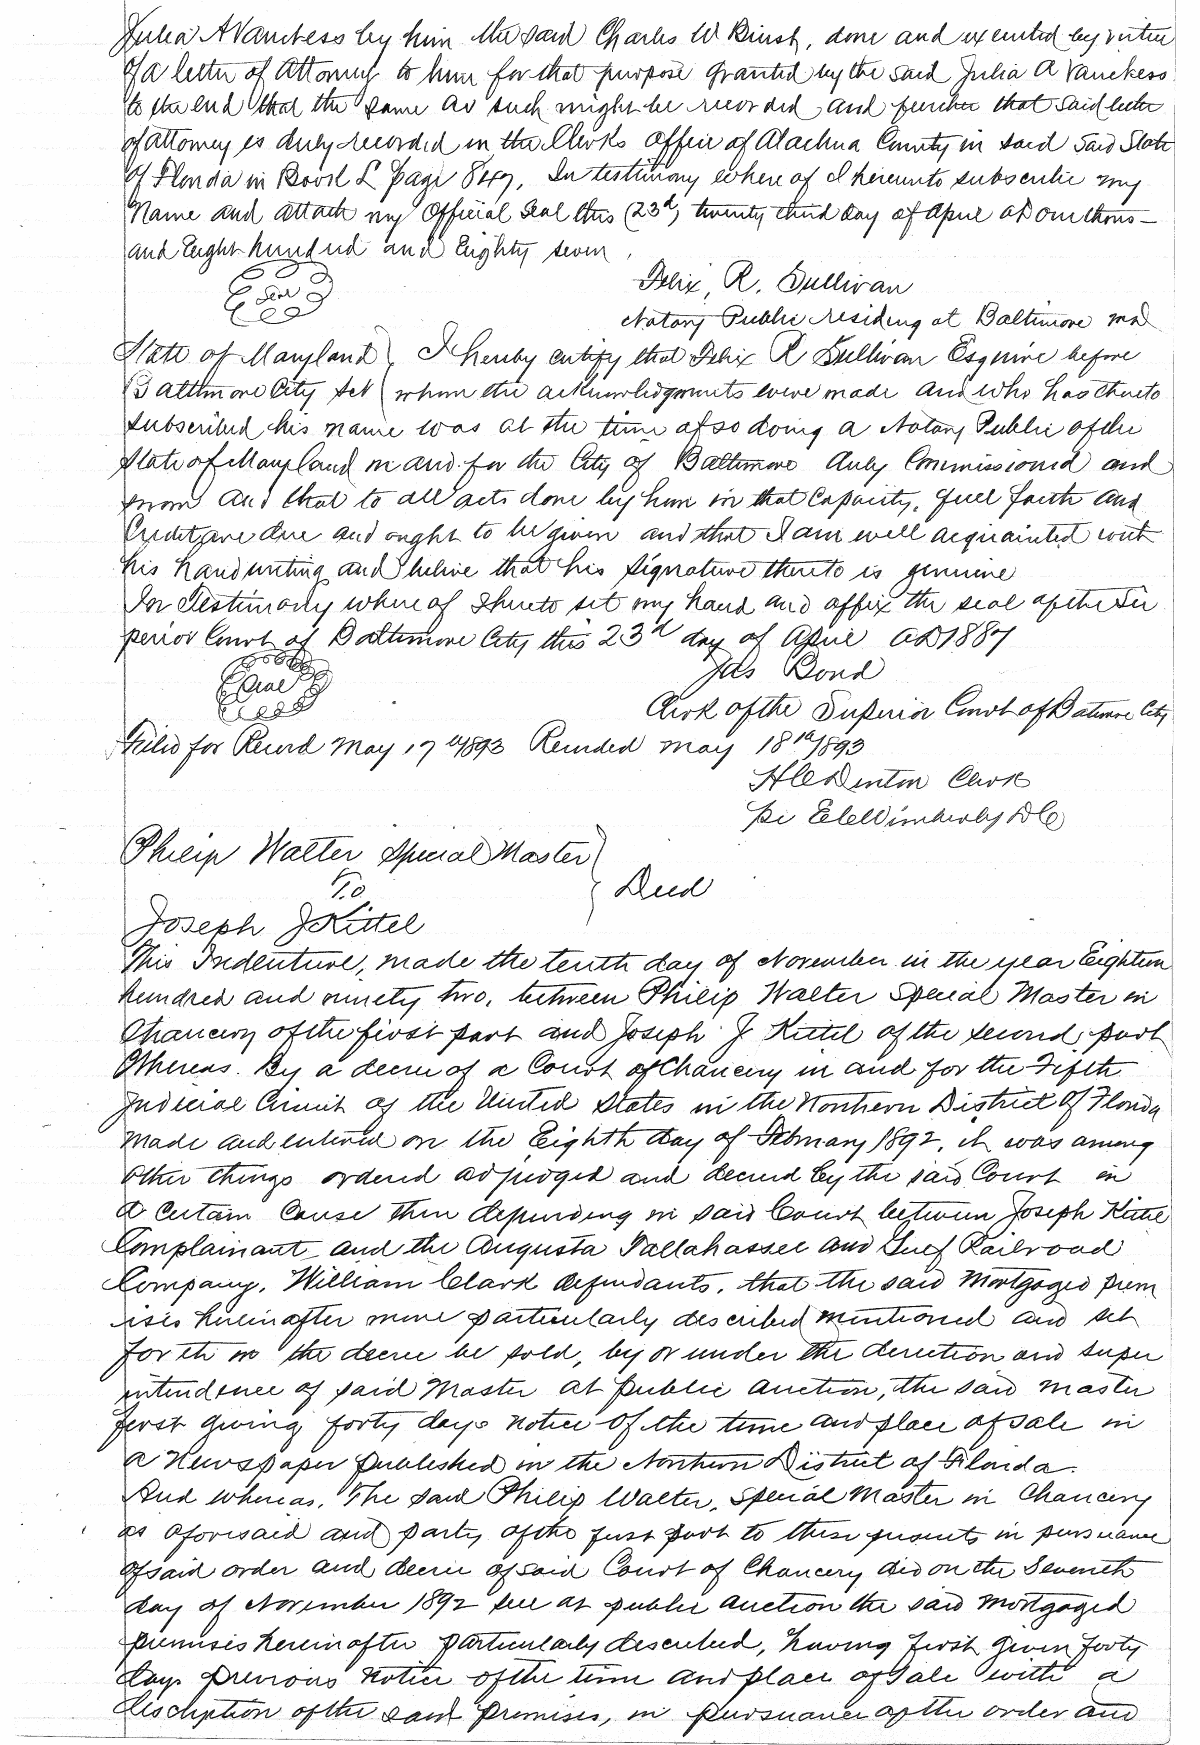 Julia A Vanckess by him the said Charles W Birst, done and executed by virtue
of a letter of Attorney to him for that purpose granted by the said Julia A Vanckess
to the end that the same as such might be recorded and further that said letter
of attorney is duly recorded in the Clerks Office of Alachua County in said Said State
of Florida in Book L page 847, In testimony where of I hereunto subscribe my
Name and attach my Official Seal this (23d) twenty third day of April AD one thous-
and Eight hundred and Eighty seven.
Seal
Felix, R. Sullivan
Notary Public residing at Baltimore Md
State of Maryland } I hereby certify that Felix R Sullivan Esquire before
Baltimore City Sct } whom the acknowledgments were made and who has thereto
subscribed his name was at the time of so doing a Notary Public of the
State of Maryland in and for the City of Baltimore duly Commissioned and
sworn and that to all acts done by him in that Capacity, full faith and
Credit are due and ought to be given and that I am well acquainted with
his handwriting and believe that his signature thereto is genuine
In Testimony where of I hereto set my hand and affix the seal of the Su
perior Court of Baltimore City this 23d day of April AD 1887
Seal
Jas Bond
Clerk of the Superior Court of Batimore City
Filed for Record May 17th 1893 Recorded May 18th 1893
H C Denton Clerk
per E C Wimberly DC
Philip Walter Special Master }
To } Deed
Joseph J Kittel
This Indenture, made the tenth day of November in the year Eighteen
hundred and ninety two, between Philip Walter Special Master in
Chancery of the first part and Joseph J Kittel of the second part
Whereas. By a decree of a Court of Chancery in and for the Fifth
Judicial Circuit of the United States in the Northern District of Florida
made and entered on the Eighth day of February 1892, it was among
other things ordered adjudged and decreed by the said Court in
a certain Cause then depending in said Court between Joseph Kittel
Complainant and the Augusta Tallahassee and Gulf Railroad
Company, William Clark defendants, that the said Mortgaged prem
ises hereinafter more particularly described mentioned and set
forth in the decree be sold, by or under the direction and super
intendence of said Master at public auction, the said master
first giving forty days notice of the time and place of sale in
a Newspaper published in the Northern District of Florida.
And whereas, The said Philip Walter, Special Master in Chancery
as aforesaid and party of the first part to these presents in pursuance
of said order and decree of said Court of Chancery did on the Seventh
day of November 1892 sell at public auction the said Mortgaged
premises hereinafter particularly described, having first given forty
days previous notice of the time and place of Sale with a
discription of the said premises, in pursuance of the order and